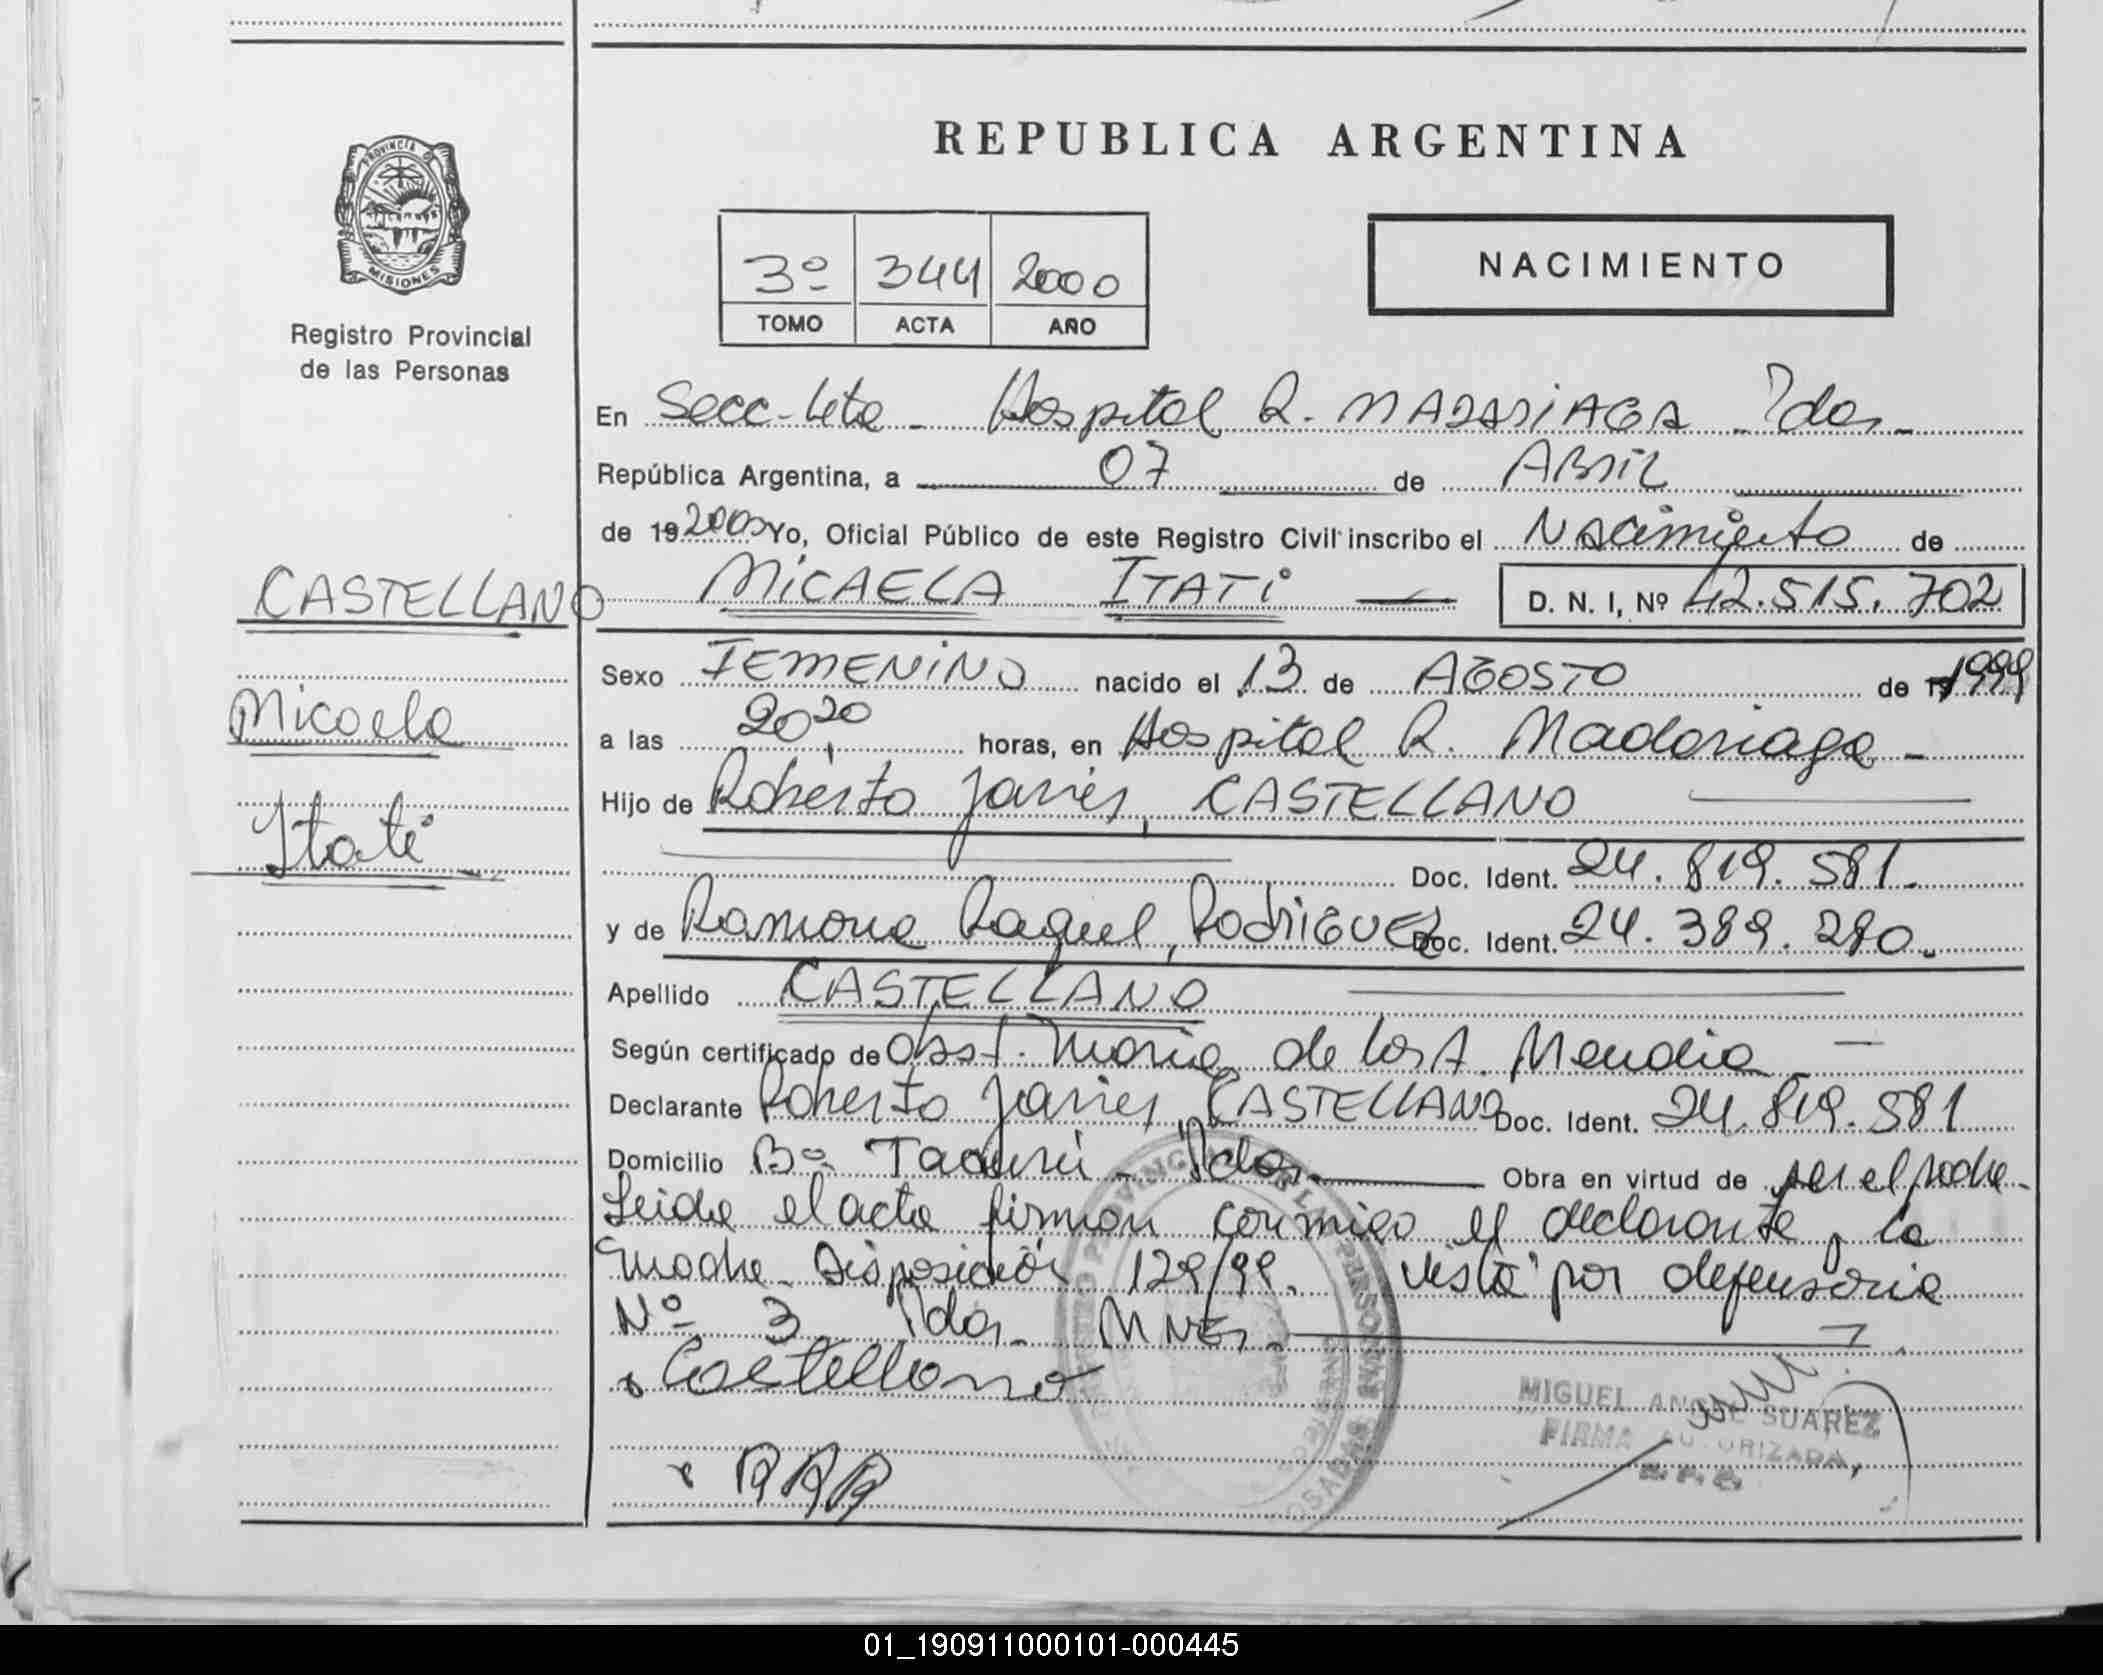 REPUBLICA ARGENTINA
PROVINCIA DE
MISIONES
Registro Provincial
de las Personas
NACIMIENTO
3º 344 2000
TOMO ACTA AÑO
En Secc-4ta - Hospital R. MADARIAGA - Pdas -
República Argentina, a 07 de ABRIL
de 19 2000 Yo, Oficial Público de este Registro Civil inscribo el Nacimiento de
CASTELLANO MICAELA ITATI D. N. I, Nº 42.515.702
Micaela
Itatí
Sexo FEMENINO nacido el 13 de AGOSTO de 19 1999
a las 20,20 horas, en Hospital R. Madariaga -
Hijo de Roberto Javier, CASTELLANO
Doc. Ident. 24.819.581.
y de Ramona Raquel, RodriGUEZ Doc. Ident. 24.389.280.
Apellido CASTELLANO
Según certificado de Obst. Maria de los A. Mendia
Declarante Roberto Javier CASTELLANO Doc. Ident. 24.819.581
Domicilio Bº Tacurú - Pdas. Obra en virtud de ser el padre.
Leida el acta firman conmigo el declarante, la
madre - Disposición 129/99. Vista por defensoria
Nº 3 Pdas. MNES.
Castellano
RRR
MIGUEL ANGEL SUAREZ
FIRMA AUTORIZADA
01_190911000101-000445